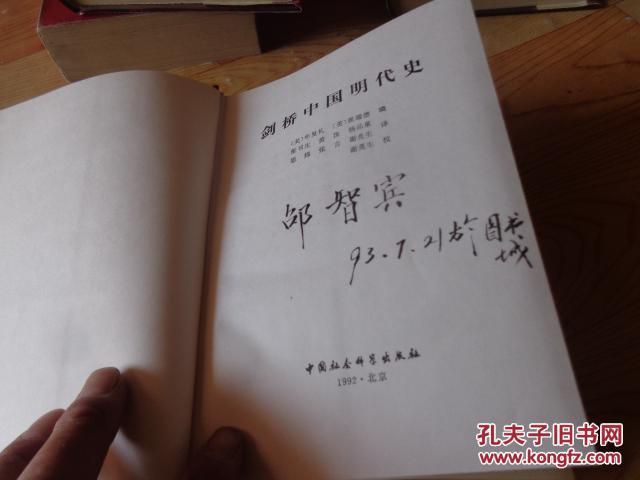 剑桥中国明代史
(美)牟复礼 (英)崔瑞德 编
张书生 黄沫 杨品泉 译
思炜 张言 谢亮生
谢亮生 校
邰智宾
93.7.21于图书城
中国社会科学出版社
1992·北京
孔夫子旧书网
www.kongfz.com